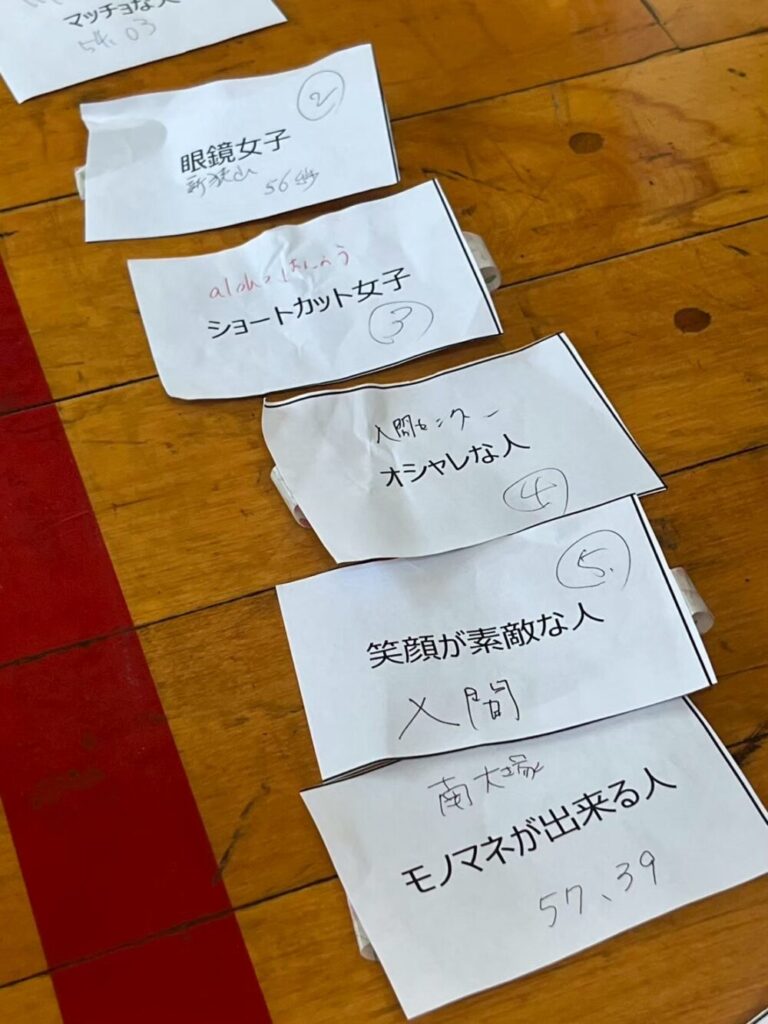 マッチョな人
54.03
②
眼鏡女子
新狭山 56秒
ショートカット女子
③
入間センター
オシャレな人
④
⑤.
笑顔が素敵な人
入間
南大塚
モノマネが出来る人
57、39